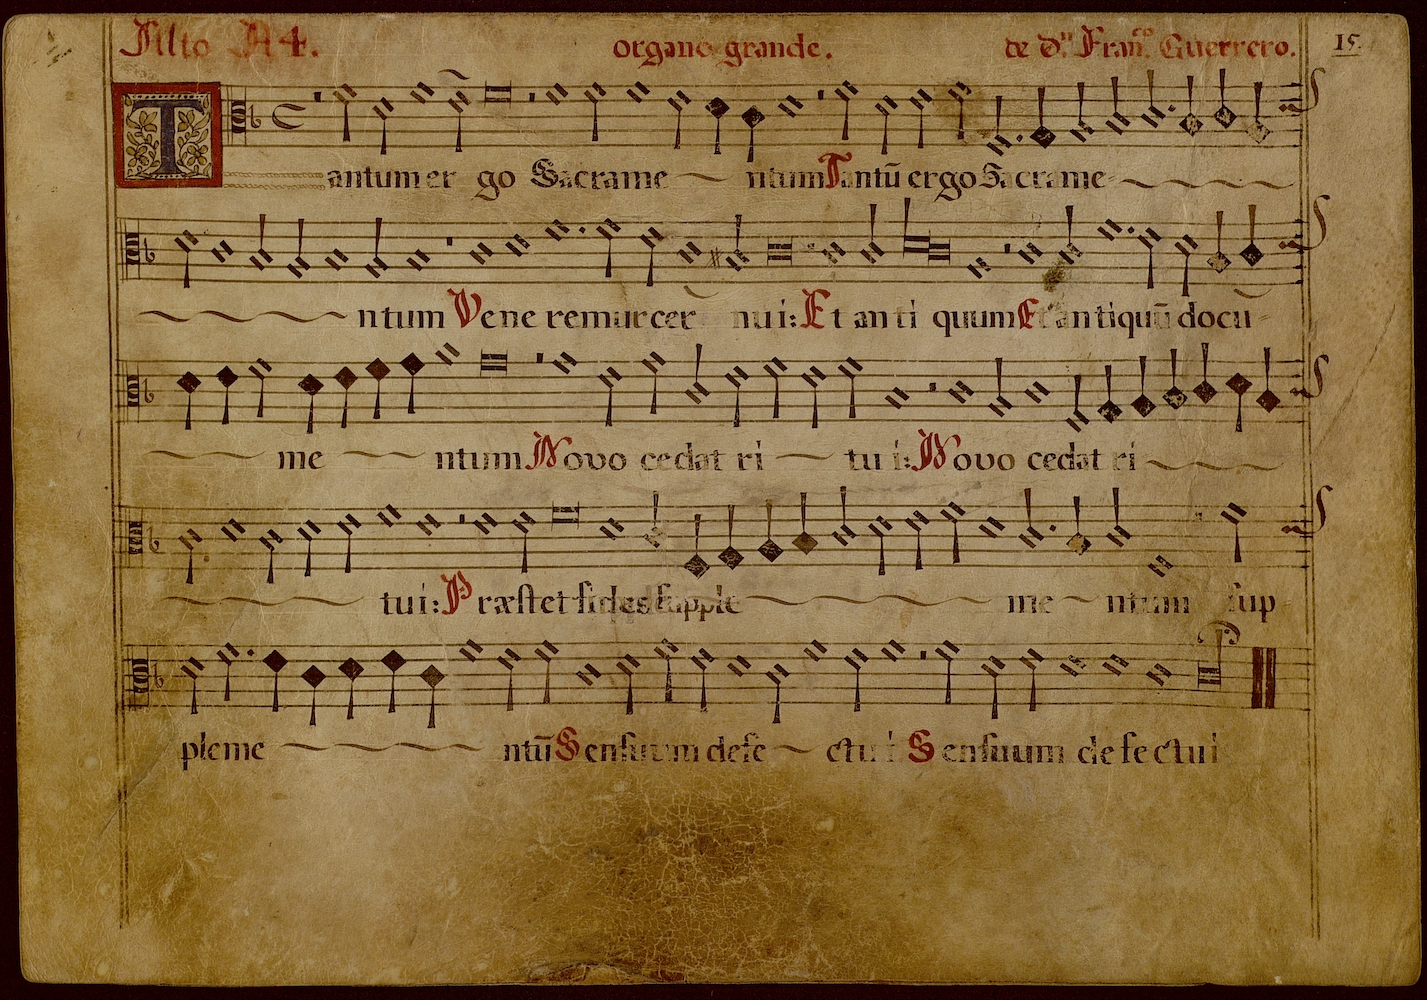 Alto A4. organo grande. de Dⁿ. Franᶜᵒ. Guerrero. 15.
Tantum er go Sacrame ntum Tantū ergo Sacrame
ntum Vene remur cer nui: Et an ti quum Et antiquū docū
me ntum Novo cedat ri tu i: Novo cedat ri
tui: Præstet fides supple me ntum sup
pleme ntū Sensuum defe ctu i Sensuum de fe ctui